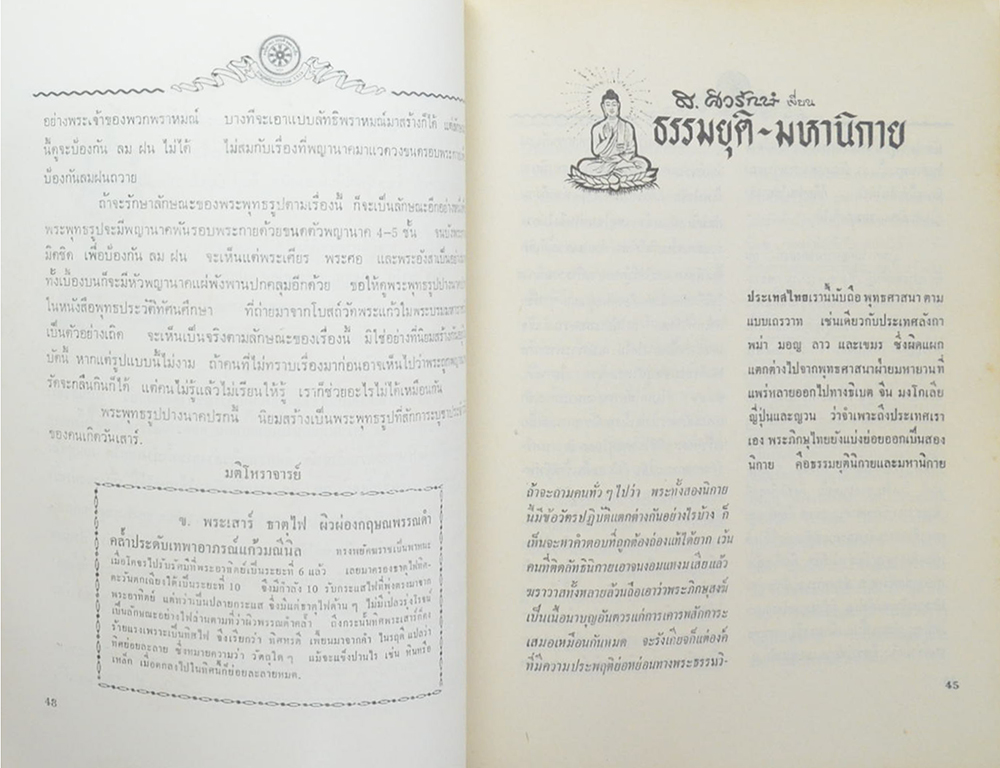 อย่างพระเจ้าของพวกพราหมณ์ บางทีจะเอาแบบลัทธิพราหมณ์มาสร้างก็ได้
นี้ดูจะป้องกัน ลม ฝน ไม่ได้ ไม่สมกับเรื่องที่พญานาคมาแวดวงขนดรอบพระกาย
ป้องกันลมฝนถวาย
ถ้าจะรักษาลักษณะของพระพุทธรูปตามเรื่องนี้ ก็จะเป็นลักษณะอีกอย่าง
พระพุทธรูปจะมีพญานาคพันรอบพระกายด้วยขนดตัวพญานาค 4-5 ชั้น
มิดชิด เพื่อป้องกัน ลม ฝน จะเห็นแต่พระเศียร พระศอ และพระอังสาเป็นอย่าง
ทั้งเบื้องบนก็จะมีหัวพญานาคแผ่พังพานปกคลุมอีกด้วย ขอให้ดูพระพุทธรูปปาง
ในหนังสือพุทธประวัติทัศนศึกษา ที่ถ่ายมาจากโบสถ์วัดพระแก้วในพระบรม
เป็นตัวอย่างเถิด จะเห็นเป็นจริงตามลักษณะของเรื่องนี้ มิใช่อย่างที่นิยมสร้างกัน
บัดนี้ หากแต่รูปแบบนี้ไม่งาม ถ้าคนที่ไม่ทราบเรื่องมาก่อนอาจเห็นไปว่าพระถูก
รัดจะกลืนกินก็ได้ แต่คนไม่รู้แล้วไม่เรียนให้รู้ เราก็ช่วยอะไรไม่ได้เหมือนกัน
พระพุทธรูปปางนาคปรกนี้ นิยมสร้างเป็นพระพุทธรูปที่สักการะบูชา
ของคนเกิดวันเสาร์.
มติโหราจารย์
ข. พระเสาร์ ธาตุไฟ ผิวผ่องกฤษณพรรณดำ
คล้ำประดับเทพาอาภรณ์แก้วมณีนิล ทรงพยัคฆราชเป็นพาหนะ
เมื่อโคจรไปรับรัศมีที่พระอาทิตย์เป็นระยะที่ 6 แล้ว เลยมาครองธาตุไฟทิศ
ตะวันตกเฉียงใต้เป็นระยะที่ 10 ซึ่งมีกำลัง 10 รับกระแสไฟที่พุ่งตรงมาจาก
พระอาทิตย์ แต่ทว่าเป็นปลายกระแส ซึ่งมีแต่ธาตุไฟด้าน ๆ ไม่มีเปลวรุ่งโรจน์
เป็นลักษณะอย่างไฟถ่านตามที่ว่าผิวพรรณดำคล้ำ ถึงกระนั้นทิศพระเสาร์ก็คง
ร้ายแรงเพราะเป็นทิศไฟ ซึ่งเรียกว่า ทิศหรดี เพี้ยนมาจากคำ ในรฤดี แปลว่า
ทิศย่อยละลาย ซึ่งหมายความว่า วัตถุใด ๆ แม้จะแข็งปานไร เช่น หินหรือ
เหล็ก เมื่อตกลงไปในทิศนี้ก็ย่อยละลายหมด.
48
ส. ศิวรักษ์ เขียน
ธรรมยุติ-มหานิกาย
ประเทศไทยเรานี้นับถือ พุทธศาสนา ตาม
แบบเถรวาท เช่นเดียวกับประเทศลังกา
พม่า มอญ ลาว และเขมร ซึ่งผิดแผก
แตกต่างไปจากพุทธศาสนาฝ่ายมหายานที่
แพร่หลายออกไปทางธิเบต จีน มงโกเลีย
ญี่ปุ่นและญวน ว่าจำเพาะถึงประเทศเรา
เอง พระภิกษุไทยยังแบ่งย่อยออกเป็นสอง
นิกาย คือธรรมยุตินิกายและมหานิกาย
ถ้าจะถามคนทั่ว ๆ ไปว่า พระทั้งสองนิกาย
นี้มีข้อวัตรปฏิบัติแตกต่างกันอย่างไรบ้าง ก็
เห็นจะหาคำตอบที่ถูกต้องถ่องแท้ได้ยาก เว้น
คนที่ติดลัทธินิกายเอาจนงอมแงมเสียแล้ว
ฆราวาสทั้งหลายล้วนถือเอาว่าพระภิกษุสงฆ์
เป็นเนื้อนาบุญอันควรแก่การเคารพสักการะ
เสมอเหมือนกันหมด จะรังเกียจก็แต่องค์
ที่มีความประพฤติย่อหย่อนทางพระธรรมวิ-
45